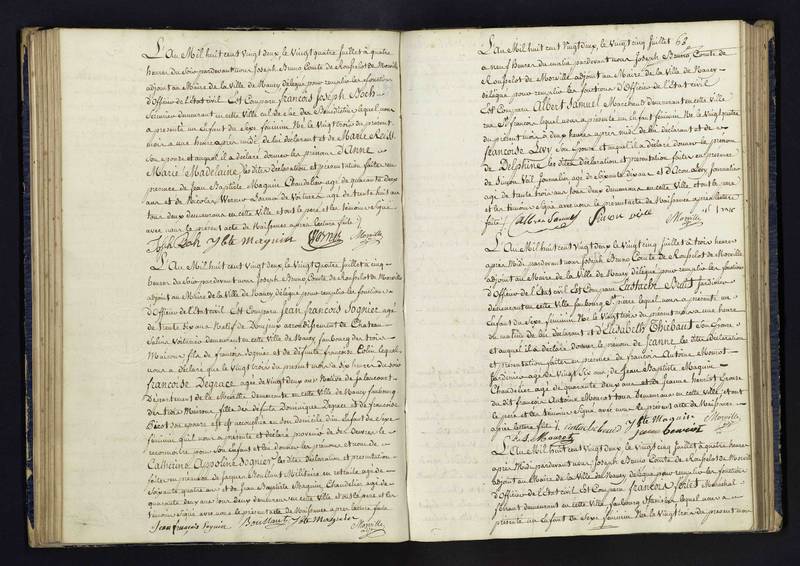 L'an Mil huit cent Vingt deux, le Vingt quatre Juillet à quatre
heures du Soir pardevant nous Joseph Bruno Comte de Rousselot de Morville
adjoint au Maire de la Ville de Nancy délégué pour remplir les fonctions
d'Officier de l'Etat civil. Est Comparu françois Joseph Boch
demeurant en cette Ville cul de sac des Bénédictins lequel nous
a présenté un Enfant du Sexe féminin Né le Vingt trois du présent
mois a une heure après midi de lui déclarant et de Marie Reiss
Son Epouse et auquel il a déclaré donner les prénoms d'Anne
Marie Madelaine, les dites déclaration et présentation faites en
présence de Jean Baptiste Maguin Chandelier agé de quarante deux
ans et de Nicolas Werner Loueur de Voitures agé de trente huit ans
tous deux demeurans en cette Ville et ont le père et les témoins Signé
avec nous le présent acte de Naissance après lecture faite
Joseph Boch J Bte Maguin Werner Morville
L'an Mil huit cent Vingt deux, le Vingt quatre Juillet à cinq
heures du Soir pardevant nous Joseph Bruno Comte de Rousselot de Morville
adjoint au Maire de la Ville de Nancy délégué pour remplir les fonctions
d'Officier de l'Etat civil. Est Comparu Jean françois Sognier agé
de trente six ans Natif de arrondissement de Chateau
Salins demeurant en cette Ville de Nancy faubourg des trois
Maisons fils de françois Sognier et de défunte françoise Colin lequel
nous a déclaré que le Vingt trois du présent mois à dix heures du Soir
françoise Degrace agée de Vingt deux ans Native de
Département de la Meurthe demeurante en cette Ville de Nancy faubourg
des trois Maisons fille des défunts Dominique Degrace et de françoise
est accouchée en son domicile d'un Enfant de Sexe
féminin qu'il nous a présenté et déclaré provenir de ses œuvres le
reconnoitre pour son Enfant et lui donner les prénoms et nom de
Catherine Appoline Sognier, les dites déclaration et présentation
faites en présence de Jacques Boullaut Militaire en retraite agé de
Soixante quatre ans et de Jean Baptiste Maguin Chandelier agé de
quarante deux ans tous deux demeurans en cette Ville et ont le père et les
témoins Signé avec nous le présent acte de Naissance après lecture faite
Jean françois Sognier Boullaut J Bte Maguin Morville
L'an Mil huit cent Vingt deux, le Vingt cinq Juillet 63
à neuf heures du matin pardevant nous Joseph Bruno Comte de
Rousselot de Morville adjoint au Maire de la Ville de Nancy
délégué pour remplir les fonctions d'Officier de l'Etat civil
Est Comparu Albert Samuel Marchand demeurant en cette Ville
rue St françois lequel nous a présenté un Enfant féminin Né le Vingt quatre
du présent mois à deux heures après midi de lui déclarant et de
françoise Lévy Son Epouse et auquel il a déclaré donner le prénom
de Delphine, les dites déclaration et présentation faites en présence
de Simon Voil Journalier agé de Soixante dix ans et d'Aron Lévy Journalier
agé de trente trois ans tous deux demeurans en cette Ville et ont le père
et les témoins Signé avec nous le présent acte de Naissance après lecture
faite Albert Samuel Simon Voil Morville
L'an Mil huit cent Vingt deux, le Vingt cinq Juillet à trois heures
après Midi pardevant nous Joseph Bruno Comte de Rousselot de Morville
adjoint au Maire de la Ville de Nancy délégué pour remplir les fonctions
d'Officier de l'Etat civil Est Comparu Eustache Jardinier
demeurant en cette Ville faubourg St pierre lequel nous a présenté un
Enfant du Sexe féminin Né le Vingt trois du présent mois à une heure
du matin de lui déclarant et d'Elizabeth Thiebaut Son Epouse
et auquel il a déclaré donner le prénom de Jeanne, les dites déclaration
et présentation faites en présence de françois Antoine Mourot
Jardinier agé de Vingt Six ans, de Jean Baptiste Maguin
Chandelier agé de quarante deux ans et de Jeanne Epouse
du dit françois Antoine Mourot tous demeurans en cette Ville, et ont
le père et les témoins Signé avec nous le présent acte de Naissance
après lecture faite J Bte Maguin Morville
Mourot
L'an Mil huit cent Vingt deux, le Vingt cinq Juillet à quatre heures
après Midi pardevant nous Joseph Bruno Comte de Rousselot de Morville
adjoint au Maire de la Ville de Nancy délégué pour remplir les fonctions
d'Officier de l'Etat civil. Est Comparu françois Maréchal
ferrant demeurant en cette Ville, faubourg Stanislas lequel nous a
présenté un Enfant de Sexe féminin Né le Vingt trois du présent mois